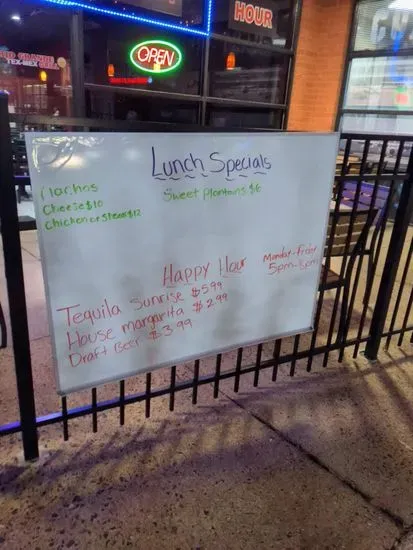 HOUR
OPEN
TEX-MEX
Lunch Specials
Nachos
Cheese $10
Chicken or Steak $12
Sweet Plantains $6
Happy Hour
Monday-Friday
Tequila Sunrise $5.99
House margarita $2.99
Draft Beer $3.99